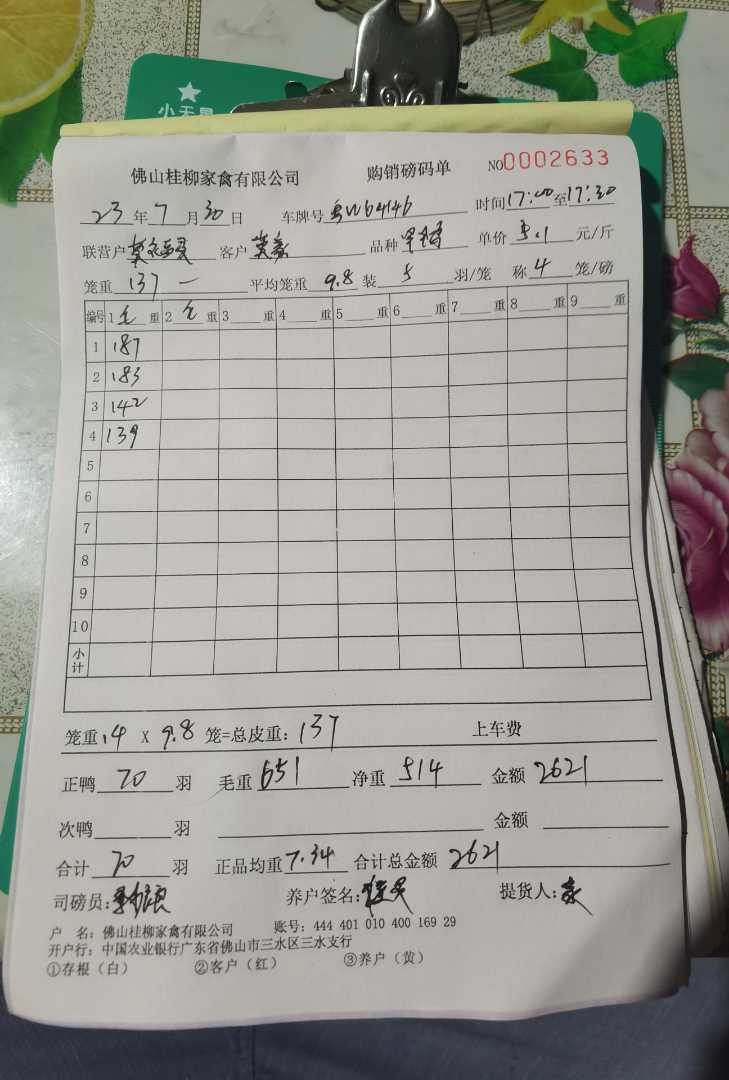 小天
佛山桂柳家禽有限公司 购销磅码单 NO0002633
23年7月30日 车牌号 W64146 时间17:00至17:30
联营户 客户 品种 单价5.1元/斤
笼重137 一 平均笼重9.8装5羽/笼 称4笼/磅
编号 1毛重 2毛重 3重 4重 5重 6重 7重 8重 9重
1 187
2 183
3 142
4 139
5
6
7
8
9
10
小计
笼重14 X 9.8 笼=总皮重:137 上车费
正鸭70羽 毛重651 净重514 金额2621
次鸭 羽 金额
合计70羽 正品均重7.34 合计总金额2621
司磅员: 养户签名: 提货人:
户 名:佛山桂柳家禽有限公司 账号:444 401 010 400 169 29
开户行:中国农业银行广东省佛山市三水区三水支行
①存根(白) ②客户(红) ③养户(黄)